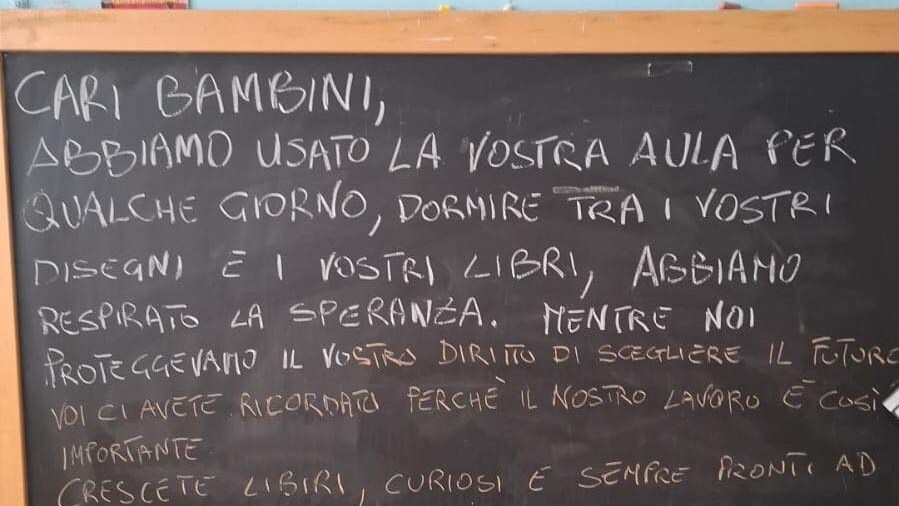 CARI BAMBINI,
ABBIAMO USATO LA VOSTRA AULA PER
QUALCHE GIORNO, DORMIRE TRA I VOSTRI
DISEGNI E I VOSTRI LIBRI, ABBIAMO
RESPIRATO LA SPERANZA. MENTRE NOI
PROTEGGEVAMO IL VOSTRO DIRITTO DI SCEGLIERE IL FUTURO
VOI CI AVETE RICORDATO PERCHÈ IL NOSTRO LAVORO È COSÌ
IMPORTANTE
CRESCETE LIBIRI, CURIOSI E SEMPRE PRONTI AD